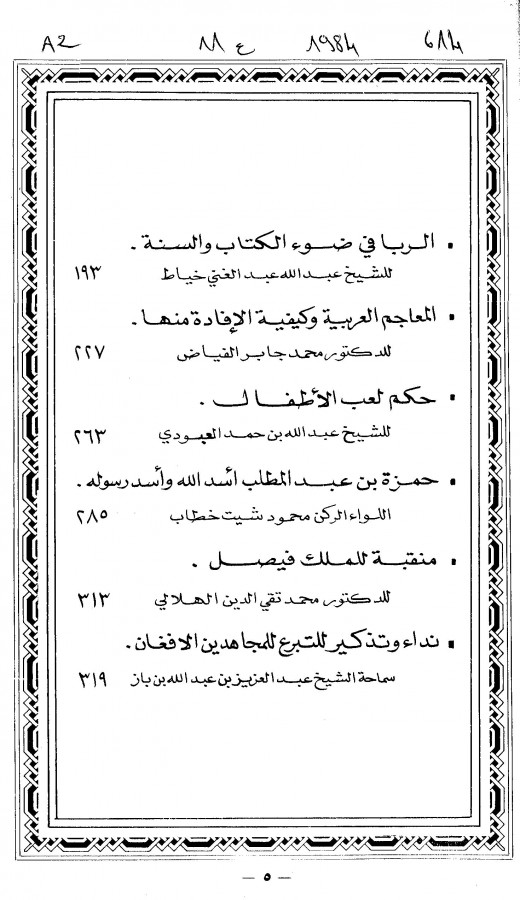 A2 11 ع 1984 614
• الربا في ضوء الكتاب والسنة .
للشيخ عبد الله عبد الغني خياط ١٩٣
• المعاجم العربية وكيفية الإفادة منها .
للدكتور محمد جابر الفياض ٢٢٧
• حكم لعب الأطفال .
للشيخ عبد الله بن حمد العبودي ٢٦٣
• حمزة بن عبد المطلب أسد الله وأسد رسوله .
اللواء الركن محمود شيت خطاب ٢٨٥
• منقبة للملك فيصل .
للدكتور محمد تقي الدين الهلالي ٣١٣
• نداء وتذكير للتبرع للمجاهدين الافغان .
سماحة الشيخ عبد العزيز بن عبد الله بن باز ٣١٩
— ٥ —